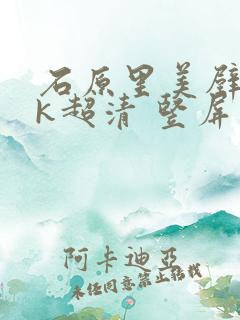 石原里美壁
k超清 竖屏
阿卡迪亚
未经同意禁止转载